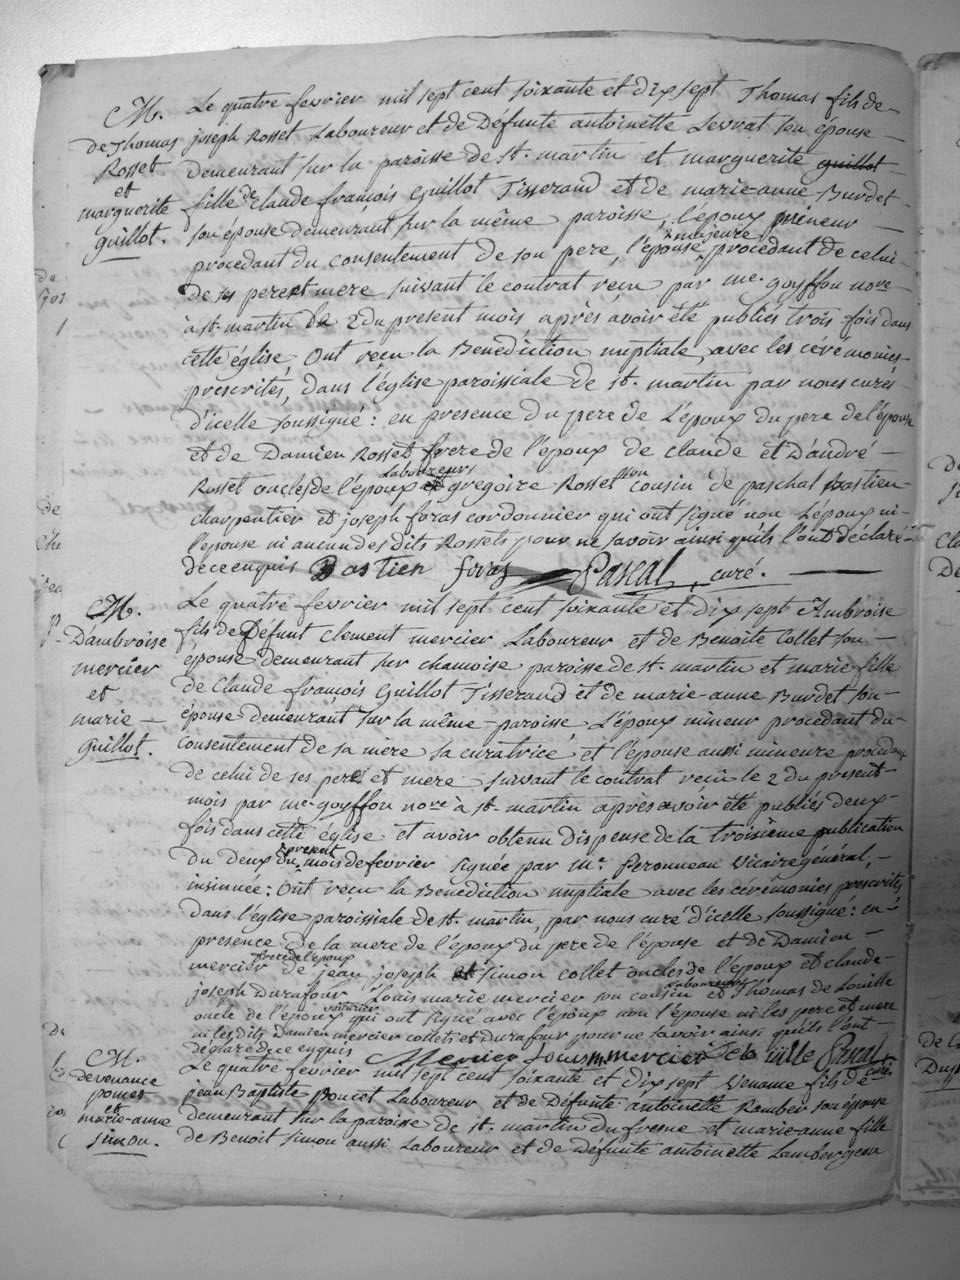 M.
de Thomas
Rosset
et
marguerite
guillot.
Le quatre fevrier mil sept cent soixante et dix sept Thomas fils de
joseph Rosset Laboureur et de Defunte antoinette Levrat son épouse
demeurant sur la paroisse de st. martin et marguerite guillot
fille de Claude françois Guillot Tisserand et de marie-anne Burdet
son épouse demeurant sur la même paroisse, l'époux mineur
procedant du consentement de son pere, l'épouse majeure procedant de celui
de ses pere et mere suivant le contrat reçu par me. goyffon nore
à st. martin le 2 du present mois après avoir été publiés trois fois dans
cette église, Ont reçu la Benediction nuptiale avec les cérémonies
prescrites, dans l'église paroissiale de st. martin par nous curé
d'icelle soussigné : en presence du pere de L'époux du pere de l'épouse
et de Damien Rosset frere de l'époux de claude et D'andré
Rosset oncles de l'époux Laboureurs et gregoire Rosset son cousin de paschal Bastien
charpentier et joseph foras cordonnier qui ont signé non L'époux ni
l'épouse ni aucun des dits Rossets pour ne savoir ainsi qu'ils l'ont déclaré
de ce enquis Bastien foras Pascal, curé.
M.
Dambroise
mercier
et
marie
guillot.
Le quatre fevrier mil sept cent soixante et dix sept Ambroise
fils de Défunt Clement mercier Laboureur et de Benoite Collet son
épouse demeurant sur chamoise paroisse de st. martin et marie fille
de Claude françois Guillot Tisserand et de marie-anne Burdet son
épouse demeurant sur la même paroisse L'époux mineur procedant du
consentement de sa mère sa curatrice, et l'épouse aussi mineure procedant
de celui de ses pere et mere suivant le contrat reçu le 2 du present
mois par me. goyffon nore à st. martin après avoir été publiés deux
fois dans cette église et avoir obtenu dispense de la troisième publication
du deux du present mois de fevrier signée par mr. peronneau vicaire général,
insinuée : Ont reçu la Benediction nuptiale avec les cérémonies prescrites
dans l'église paroissiale de st. martin, par nous curé d'icelle soussigné : en
presence de la mere de l'époux du pere de l'épouse et de Damien
mercier frere de l'époux de jean joseph et simon Collet oncles de l'époux et claude
joseph Durafour Louis marie mercier son cousin Laboureurs et Thomas de Louille
oncle de l'époux voiturier qui ont signé avec l'époux non l'épouse ni les pere et mere
ni les dits Damien mercier collets et durafour pour ne savoir ainsi qu'ils l'ont
déclaré de ce enquis Mercier Louis m mercier de la ville Pascal curé
M.
de venance
poncet
et
marie-anne
simon.
Le quatre fevrier mil sept cent soixante et dix sept Venance fils de
jean Baptiste Poncet Laboureur et de Defunte antoinette Romber son épouse
demeurant sur la paroisse de st. martin du fresne et marie-anne fille
de Benoit simon aussi Laboureur et de défunte antoinette